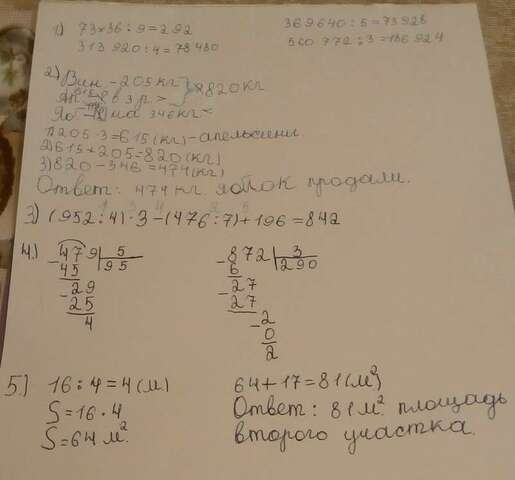 1) 73×36 : 9 = 292
369640 : 5 = 73928
313 920 : 4 = 78480
560 772 : 3 = 186 924
2) Вин. – 205 кг } 8820 кг
в 3 р >
Яб – на 346 кг <
1) 205 · 3 = 615 (кг) – апельсины.
2) 615 + 205 = 820 (кг)
3) 820 – 346 = 474 (кг)
Ответ: 474 кг яблок продали.
3) (952 : 4) · 3 – (476 : 7) + 196 = 842
4.) – 479 | 5
45 | 95
– 29
25
4
– 872 | 3
6 | 290
– 27
27
– 2
0
2
5) 16 : 4 = 4 (м)
S = 16 · 4
S = 64 м²
64 + 17 = 81 (м²)
Ответ: 81 м² площадь
второго участка.